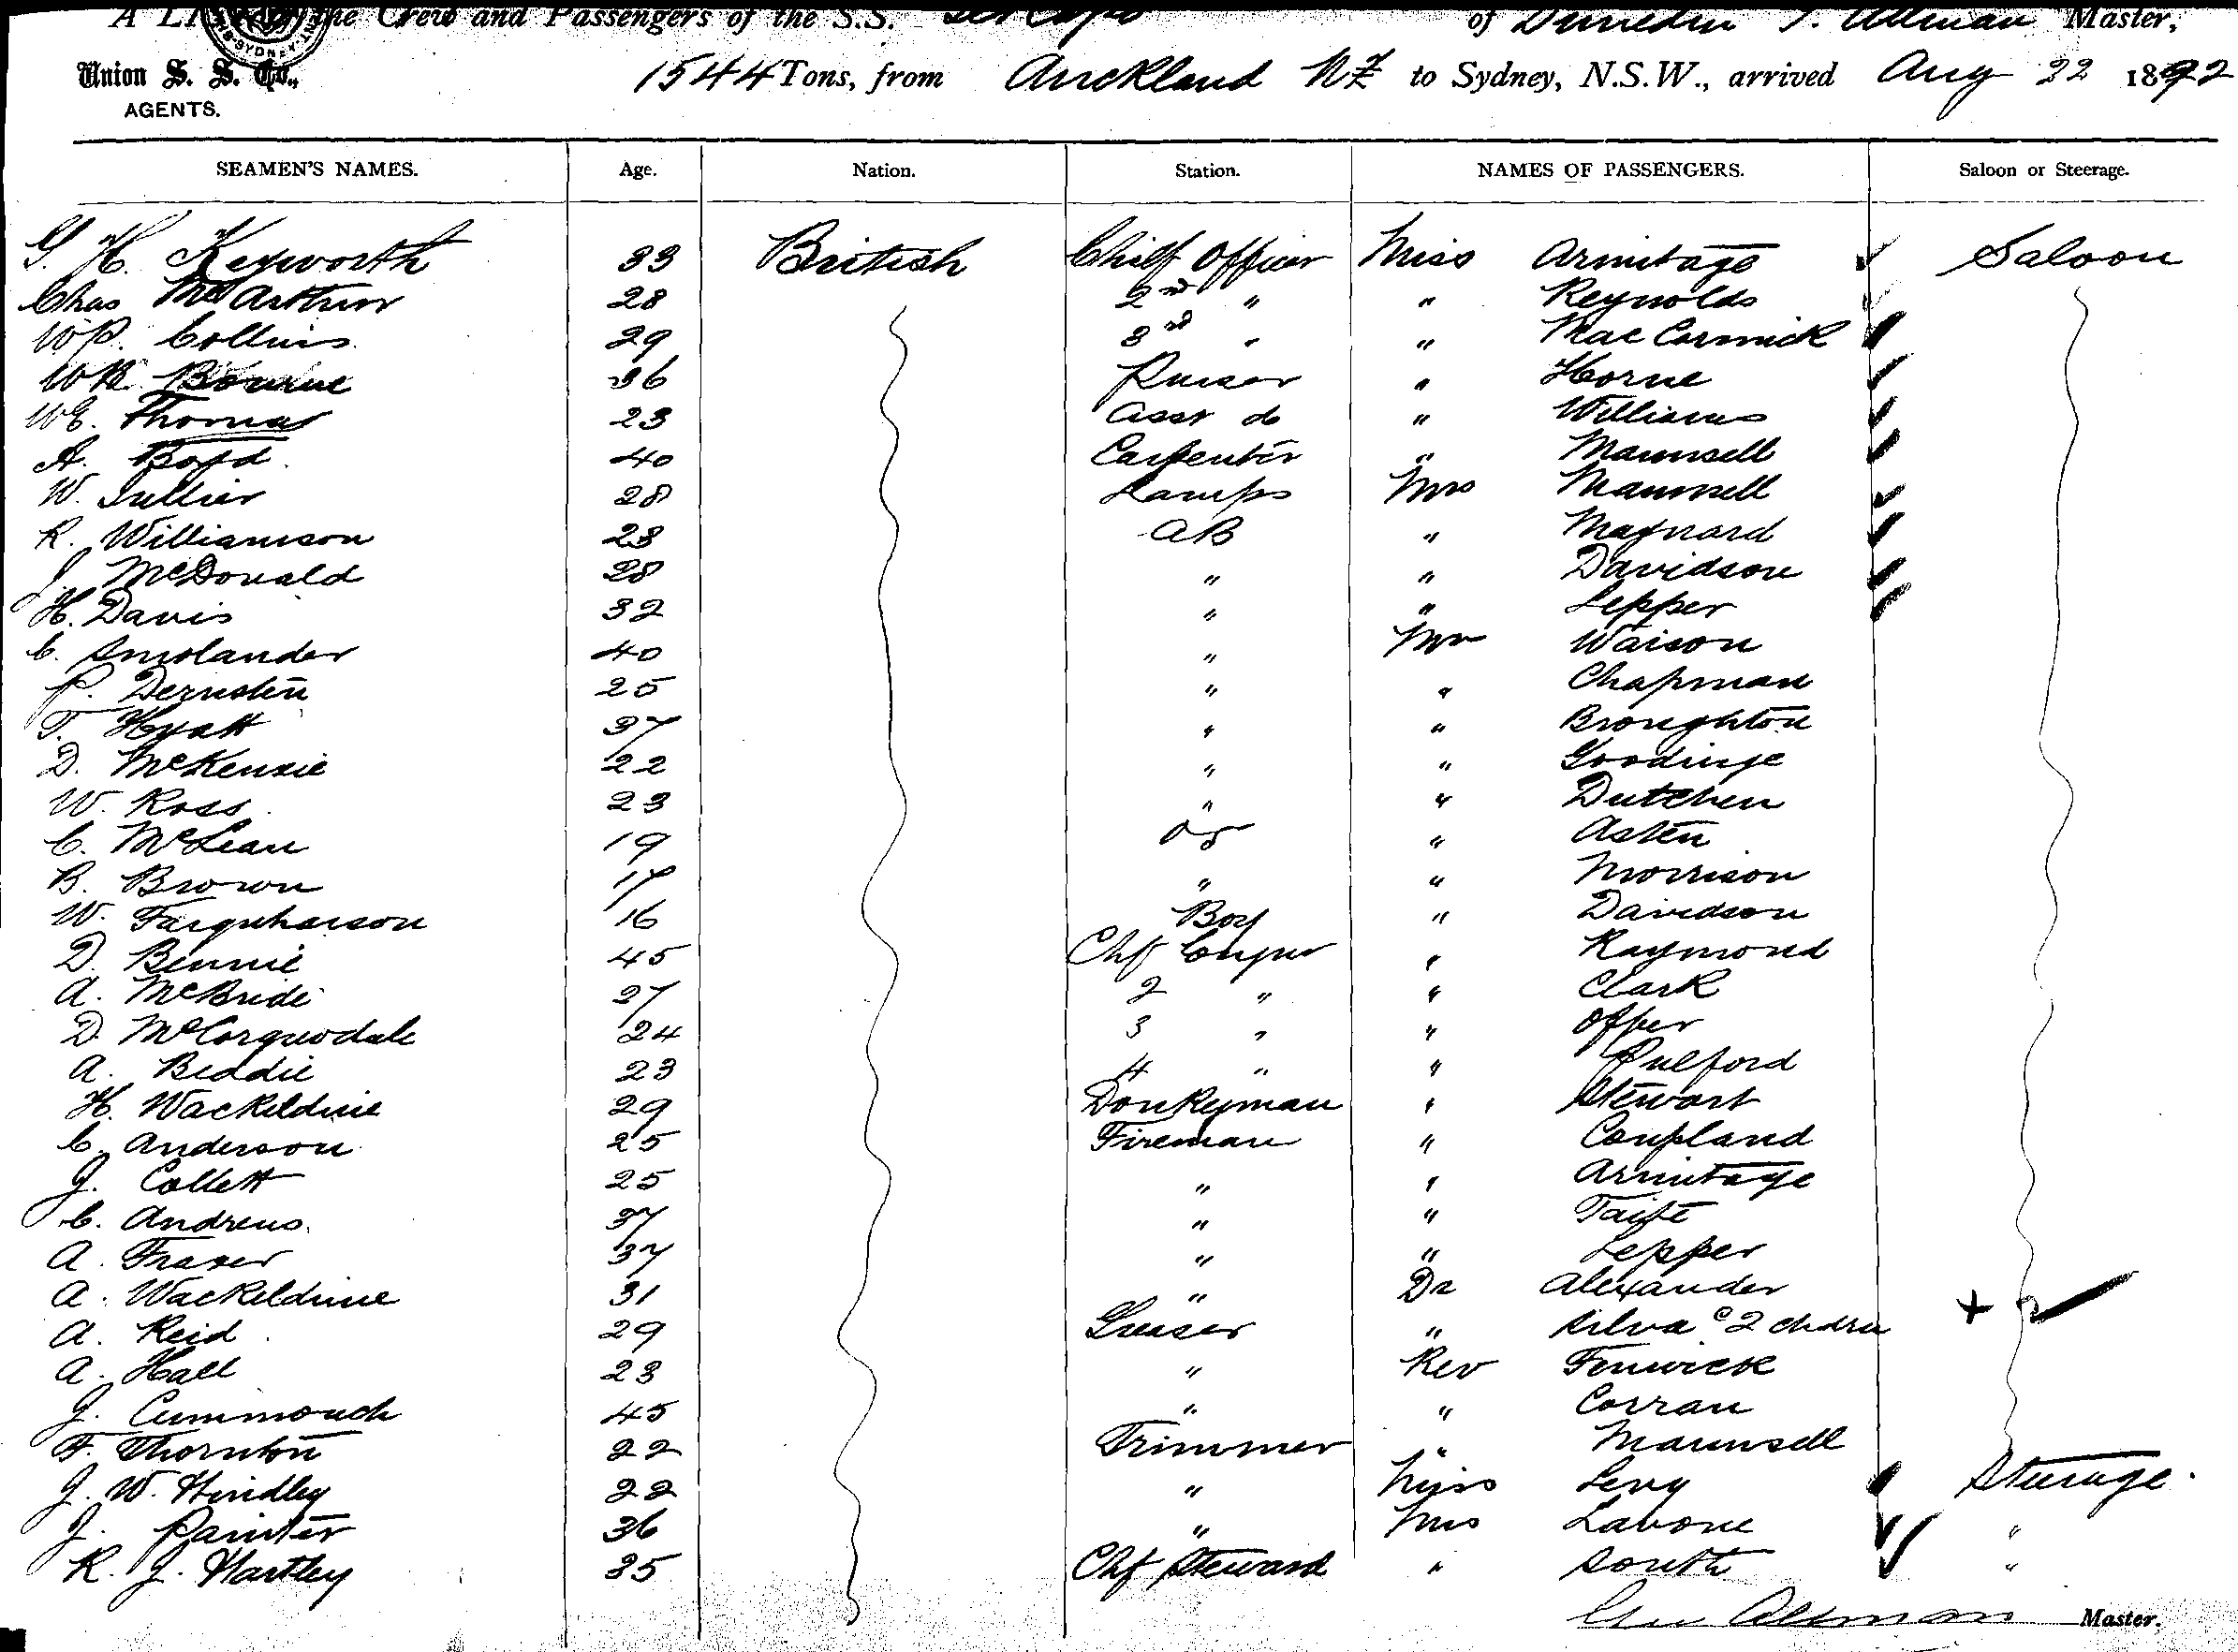 A LIST of the Crew and Passengers of the S.S. of Dunedin Allman Master,
Union S. S. Co., 1544 Tons, from Auckland NZ to Sydney, N.S.W., arrived Aug 22 1892
AGENTS.
SEAMEN'S NAMES. Age. Nation. Station. NAMES OF PASSENGERS. Saloon or Steerage.
G. H. Kexworth 33 British Chief Officer Miss Armitage Saloon
Chas McArthur 28 2nd " " Reynolds
W P. Collins 29 3rd " " MacCormick
W B Bourne 36 Purser " Horne
W E. Thomas 23 Asst do " Williams
A. Boyd 40 Carpenter " Maunsell
W. 28 Lamps Mrs Maunsell
R. Williamson 23 AB " Maynard
J. McDonald 28 " " Davidson
H. Davis 32 " " Lepper
C. Smolander 40 " Mr Waison
P. Dernsten 25 " " Chapman
T. Hyatt 37 " " Broughton
D. McKenzie 22 " " Goodinge
W. Ross 23 " " Dutchen
C. McLean 19 OS " Asten
B. Brown 17 " " Morrison
W. Farquharson 16 Boy " Davidson
D. Bennie 45 Chf " Raymond
A. McBride 27 2 " " Clark
D. McCorquodale 24 3 " " Offer
A. Beddie 23 4 " " Pulford
H. Wackeldine 29 Donkeyman " Stewart
C. Anderson 25 Fireman " Coupland
J. Collett 25 " " Armitage
C. Andrews 37 " " Taite
A. Fraser 37 " " Lepper
A. Wackeldine 31 " Dr Alexander
A. Reid 29 Greaser " Silva & 2 chdrn
A. Hall 23 " Rev Fenwick
J. Cummouch 45 " " Corran
F. Thornton 22 Trimmer " Maunsell
J. W. Hindley 22 " Miss Levy Steerage.
J. Painter 36 " Mrs Labone "
R. J. Hartley 35 Chf Steward " South "
Allman Master.